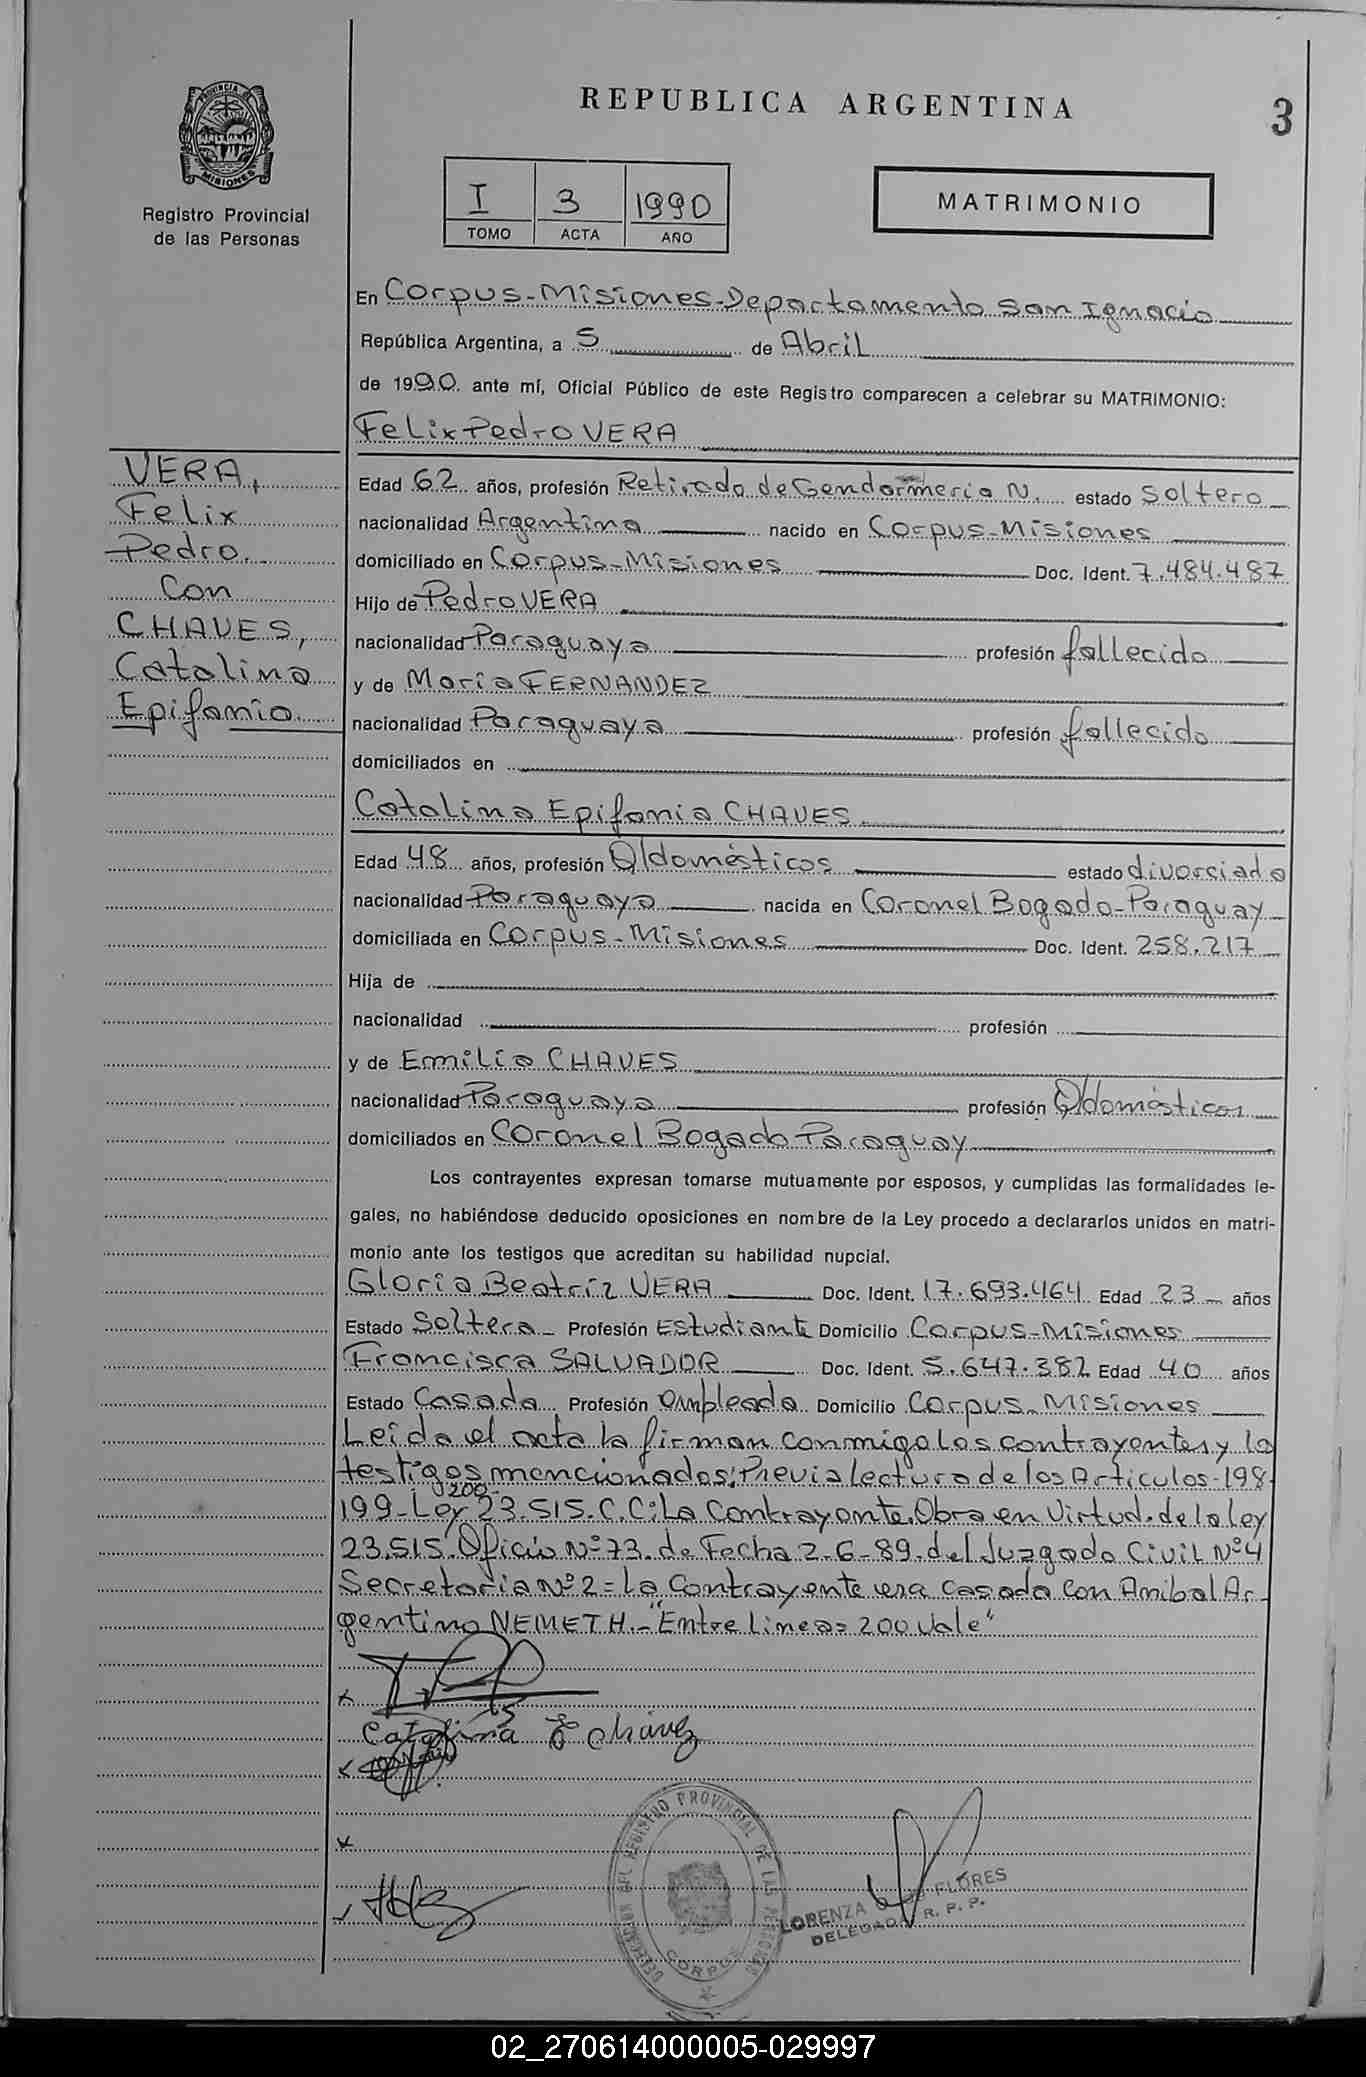 REPUBLICA ARGENTINA
3
PROVINCIA DE
MISIONES
Registro Provincial
de las Personas
I 3 1990
TOMO ACTA AÑO
MATRIMONIO
En Corpus-Misiones-Departamento San Ignacio
República Argentina, a 5 de Abril
de 1990. ante mí, Oficial Público de este Registro comparecen a celebrar su MATRIMONIO:
Felix Pedro VERA
VERA,
Felix
Pedro.
Con
CHAVES,
Catalina
Epifania.
Edad 62 años, profesión Retirado de Gendarmeria N. estado Soltero
nacionalidad Argentina nacido en Corpus-Misiones
domiciliado en Corpus-Misiones Doc. Ident. 7.484.487
Hijo de Pedro VERA
nacionalidad Paraguaya profesión fallecido
y de Maria FERNANDEZ
nacionalidad Paraguaya profesión fallecida
domiciliados en
Catalina Epifania CHAVES
Edad 48 años, profesión Q/domésticos estado divorciada
nacionalidad Paraguaya nacida en Coronel Bogado-Paraguay
domiciliada en Corpus-Misiones Doc. Ident. 258.217
Hija de
nacionalidad profesión
y de Emilia CHAVES
nacionalidad Paraguaya profesión Q/domésticos
domiciliados en Coronel Bogado Paraguay
Los contrayentes expresan tomarse mutuamente por esposos, y cumplidas las formalidades le-
gales, no habiéndose deducido oposiciones en nombre de la Ley procedo a declararlos unidos en matri-
monio ante los testigos que acreditan su habilidad nupcial.
Gloria Beatríz VERA Doc. Ident. 17.693.464 Edad 23 años
Estado Soltera - Profesión Estudiante Domicilio Corpus-Misiones
Francisca SALVADOR Doc. Ident. 5.647.382 Edad 40 años
Estado Casada Profesión empleada Domicilio Corpus-Misiones
Leida el acta la firman conmigo los contrayentes y lo
testigos mencionados; Previa lectura de los Articulos-198
200-
199-Ley 23.515.C.C: La Contrayente. Obra en Virtud. de la ley
23.515. Oficio Nº 73. de Fecha 2-6-89. del Juzgado Civil Nº4
Secretaria Nº 2 = la Contrayente era casada con Anibal Ar-
gentino NEMETH.-"Entre lineas= 200 Vale"
Catalina E Chávez
DELEGACION DEL REGISTRO PROVINCIAL DE LAS PERSONAS
CORPUS
LORENZA FLORES
DELEGADA R. P. P.
02_270614000005-029997